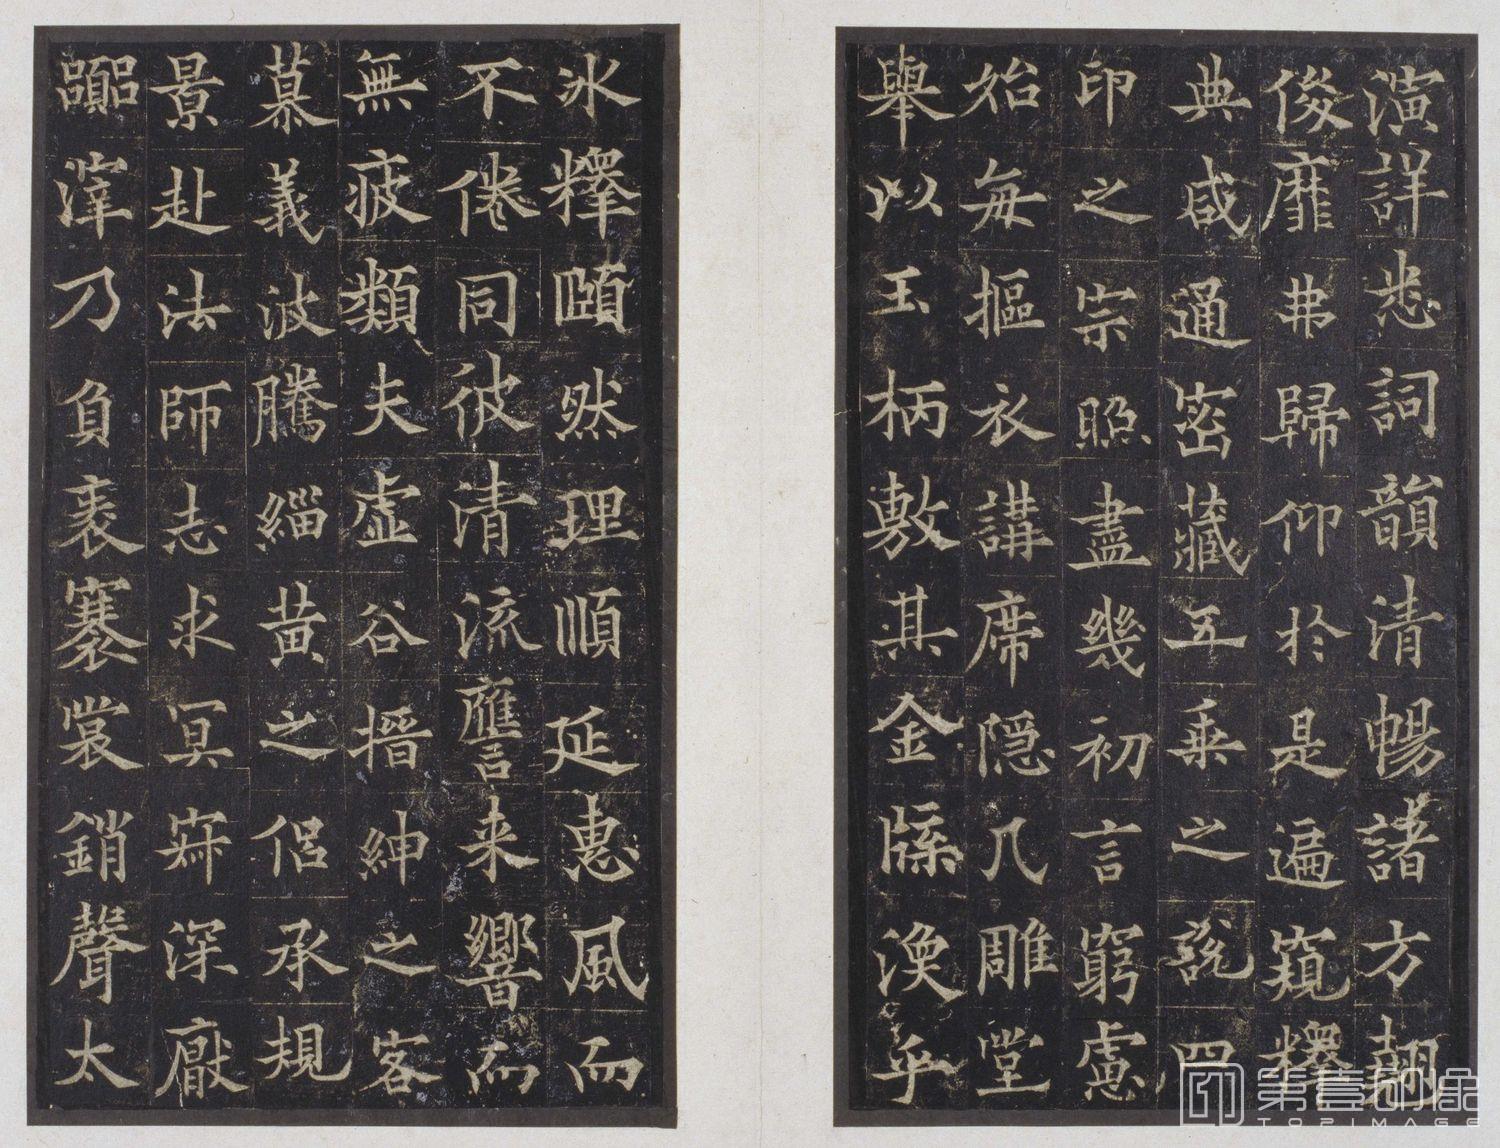 演詳悉詞韻清暢諸方翹
俊靡弗歸仰於是遍窺釋
典咸通密藏五乗之說四
印之宗照盡幾初言窮慮
始每摳衣講席隠几雕堂
舉以玉柄敷其金牒渙乎
氷釋賾然理順延惠風而
不倦同彼清流應言来響而
無疲類夫虛谷搢紳之客
慕義波騰緇黄之侣承規
景赴法師志求冥寂深厭
囂滓乃負袠褰裳銷聲太
第壹印象
TOPIMAGE